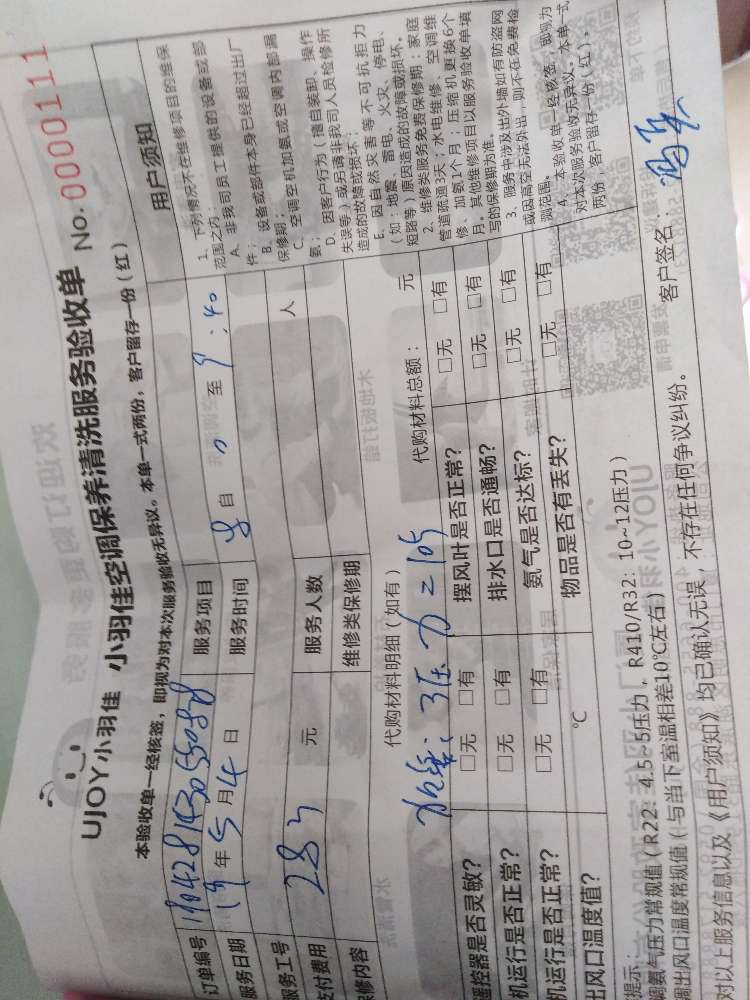 UJOY小羽佳 小羽佳空调保养清洗服务验收单 No. 0000111
本验收单一经核签，即视为对本次服务验收无异议。本单一式两份，客户留存一份（红）
订单编号 服务项目
服务日期 19 年 5 月 4 日 服务时间 自 至 9:40
服务工号 服务人数 人
支付费用 283 元 维修类保修期
保修内容
代购材料明细（如有） 代购材料总额： 元
遥控器是否灵敏？ □无 □有 摆风叶是否正常？ □无 □有
机运行是否正常？ □无 □有 排水口是否通畅？ □无 □有
机运行是否正常？ □无 □有 氨气是否达标？ □无 □有
出风口温度值？ ℃ 物品是否有丢失？ □无 □有
提示：
调氨气压力常规值（R22：4.5~5压力，R410/R32：10~12压力）
调出风口温度常规值（与当下室温相差10℃左右）
对以上服务信息以及《用户须知》均已确认无误，不存在任何争议纠纷。 客户签名：
用户须知
1、下列情况不在维修项目的维保
范围之内：
A、非我司员工提供的设备或部
件；
B、设备或部件本身已经超过出厂
保修期；
C、空调空机加氨或空调内部漏
氨；
D、因客户行为（擅自装卸、操作
失误等）或另请非我司人员检修所
造成的故障或损坏；
E、因自然灾害等不可抗拒力
（如：地震、雷电、火灾、停电、
短路等）原因造成的故障或损坏。
2、维修类服务免费保修期：家庭
管道疏通3天；水电维修、空调维
修、加氨1个月；压缩机更换6个
月。其他维修项目以服务验收单填
写的保修期为准。
3、服务中涉及出外墙如有防盗网
或因高空无法外出，则不在免费检
测范围。
4、本验收单一经核签，或视为
对本次服务验收无异议。本单一式
两份，客户留存一份（红）。